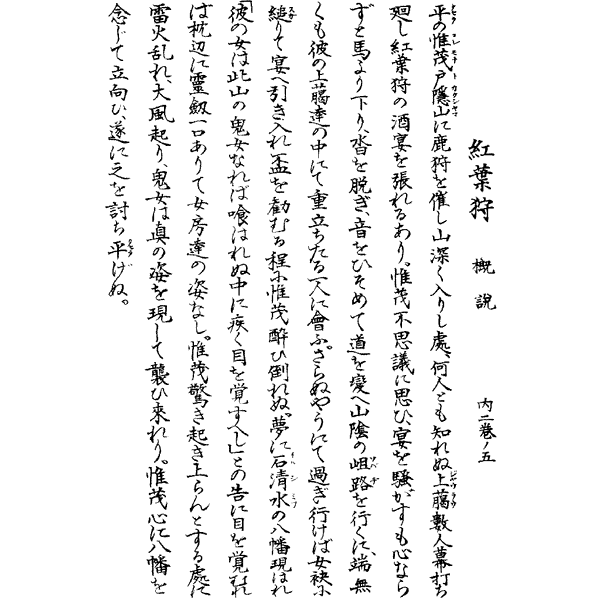 紅葉狩 概説 内二巻ノ五
平の惟茂戸隠山に鹿狩を催し山深く入りし處、何人とも知れぬ上﨟數人幕打ち
廻し紅葉狩の酒宴を張れるあり。惟茂不思議に思ひ、宴を騒がすも心なら
ずと馬より下り、沓を脱ぎ、音をひそめて道を変へ山陰の岨路を行くに、端無
くも彼の上﨟達の中にて重立ちたる一人に會ふ。さらぬやうにて過ぎ行けば女袂に
縋りて宴へ引き入れ盃を勸むる程に惟茂醉ひ倒れぬ。夢に石清水の八幡現はれ
「彼の女は此山の鬼女なれば喰はれぬ中に疾く目を覚すべし」との告に目を覚むれ
ば枕辺に靈劔一口ありて女房達の姿なし。惟茂驚き起き上らんとする處に
雷火乱れ、大風起り、鬼女は真の姿を現して襲ひ來れり。惟茂心に八幡を
念じて立向ひ、遂に之を討ち平げぬ。